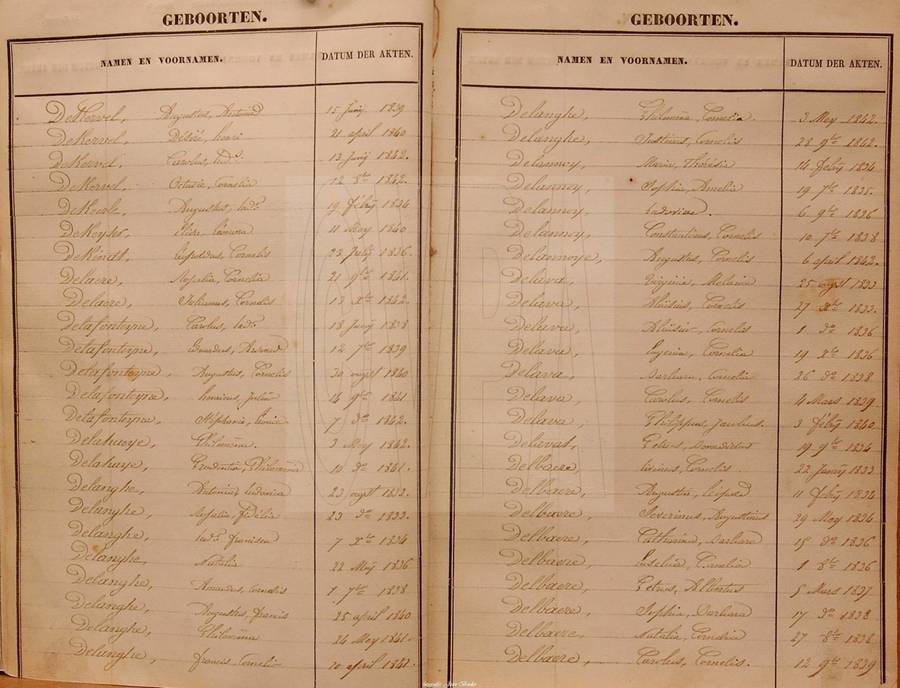 GEBOORTEN.
NAMEN EN VOORNAMEN. DATUM DER AKTEN.
DeKervel, Augustus, 15 Junij 1839
DeKervel, Désiré, 21 april 1840
DeKervel, Carolus, Lud. 13 Junij 1842.
DeKervel, Octavie, Cornelia 12 8bre 1842.
Augustus, Lud. 19 Febrij 1834
DeKeyser, 11 Mey 1840
DeKindt, Leopoldus, Cornelis 28 July 1836.
Delaere, Rosalia, Cornelia 21 9bre 1841.
Delaere, Johannes, Cornelis 13 Xbre 1842.
Delafonteyne, Carolus, Lud. 18 Junij 1838
Delafonteyne, Eduardus, 12 7bre 1839
Delafonteyne, Augustus, Cornelis 30 augst 1840
Delafonteyne, henricus, 14 9bre 1841
Delafonteyne, Stephania, 7 do 1842.
Delahaye, Philomena. 3 Mey 1842.
Delahaye, Prudentia, Philomena 10 do 1861.
Delanghe, Antonia, Ludovica 23 augst 1833.
Delanghe, Rosalia, fidelia 23 do 1833.
Delanghe, Lud. francisca 7 Xbre 1834
Delanghe, Natalia 22 Mey 1836
Delanghe, Amandus, Cornelis 1 7bre 1838.
Delanghe, Augustus, francis 25 april 1840
Delanghe, Philomena 24 Mey 1841.
Delanghe, francis, Cornelis 10 april 1842.
GEBOORTEN.
NAMEN EN VOORNAMEN. DATUM DER AKTEN.
Delanghe, Philomena, Cornelia 3 Mey 1842.
Delanghe, Justinus, Cornelis 28 9bre 1842.
Delannoy, Maria, Thérésia 14 Febrij 1834
Delannoy, Sophia, Amelia 19 7bre 1835.
Delannoy, Ludovica. 6 9bre 1836
Delannoy, Constantinus, Cornelis 10 7bre 1838
Delannoye, Augustus, Cornelis 6 april 1842.
Delava, Virginia, Melania 25 augst 1833
Delava, Aloïsius, Cornelis 27 Xbre 1833.
Delava, Cornelis 1 do 1836
Delava, Eugenia, Cornelia 19 Xbre 1836
Delava, Barbara, Cornelia 26 do 1838
Delava, Carolus, Cornelis 4 Mars 1839.
Delava, Philippus, 3 Febrij 1840.
Delaval, Petrus, Benedictus 19 9bre 1834
Delbaere, Cornelis. 22 Januij 1833
Delbaere, Augustin, Leopold 11 Febrij 1834
Delbaere, Severinus, Augustinus 29 Mey 1834.
Delbaere, Catharina, Barbara 15 do 1836
Delbaere, Cornelia 1 8bre 1836
Delbaere, Petrus, Albertus 5 Mars 1837.
Delbaere, Sophia, Barbara 17 do 1838
Delbaere, Natalia, Cornelia 27 8bre 1838
Delbaere, Carolus, Cornelis. 12 9bre 1839